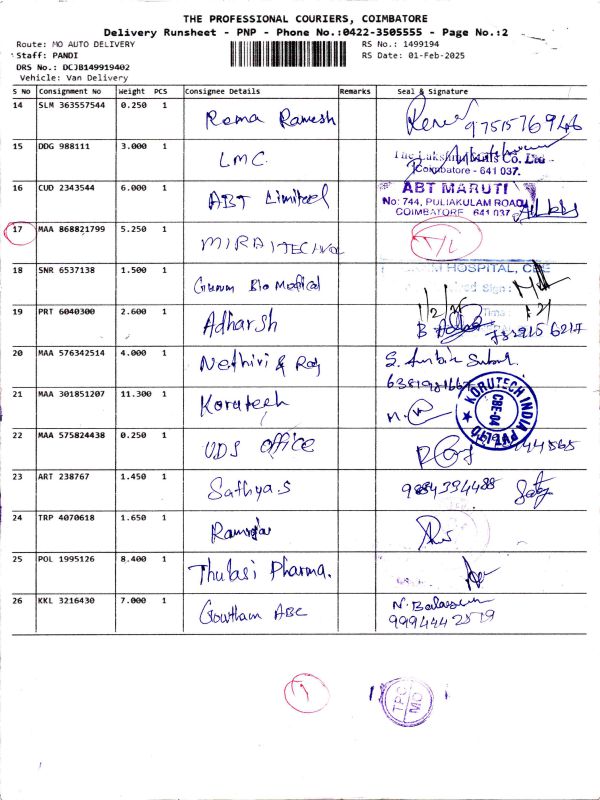 THE PROFESSIONAL COURIERS, COIMBATORE
Delivery Runsheet - PNP - Phone No.:0422-3505555 - Page No.:2
Route: MO AUTO DELIVERY RS No.: 1499194
Staff: PANDI RS Date: 01-Feb-2025
DRS No.: DCJB149919402
Vehicle: Van Delivery
S No Consignment No Weight PCS Consignee Details Remarks Seal & Signature
14 SLM 363557544 0.250 1 Rema Ramesh 9751576946
15 DDG 988111 3.000 1 LMC. The Lakshmi Mills Co. Ltd
Coimbatore - 641 037.
16 CUD 2343544 6.000 1 ABT Limited ABT MARUTI
No: 744, PULIAKULAM ROAD
COIMBATORE 641 037
17 MAA 868821799 5.250 1 MIRAITECHNO T/L
18 SNR 6537138 1.500 1 Bio Medical HOSPITAL, CBE
Sign:
19 PRT 6040300 2.600 1 Adharsh 1/2/25
Time:
20 MAA 576342514 4.000 1 Nethivi & Raj S.
21 MAA 301851207 11.300 1 Korutech KORUTECH INDIA PVT LTD
CBE-04
22 MAA 575824438 0.250 1 UDS office
23 ART 238767 1.450 1 Sathya.S 9884394488
24 TRP 4070618 1.650 1
25 POL 1995126 8.400 1 Thulasi Pharma.
26 KKL 3216430 7.000 1 Goutham ABC N.
9994442579
1 TPC
MO